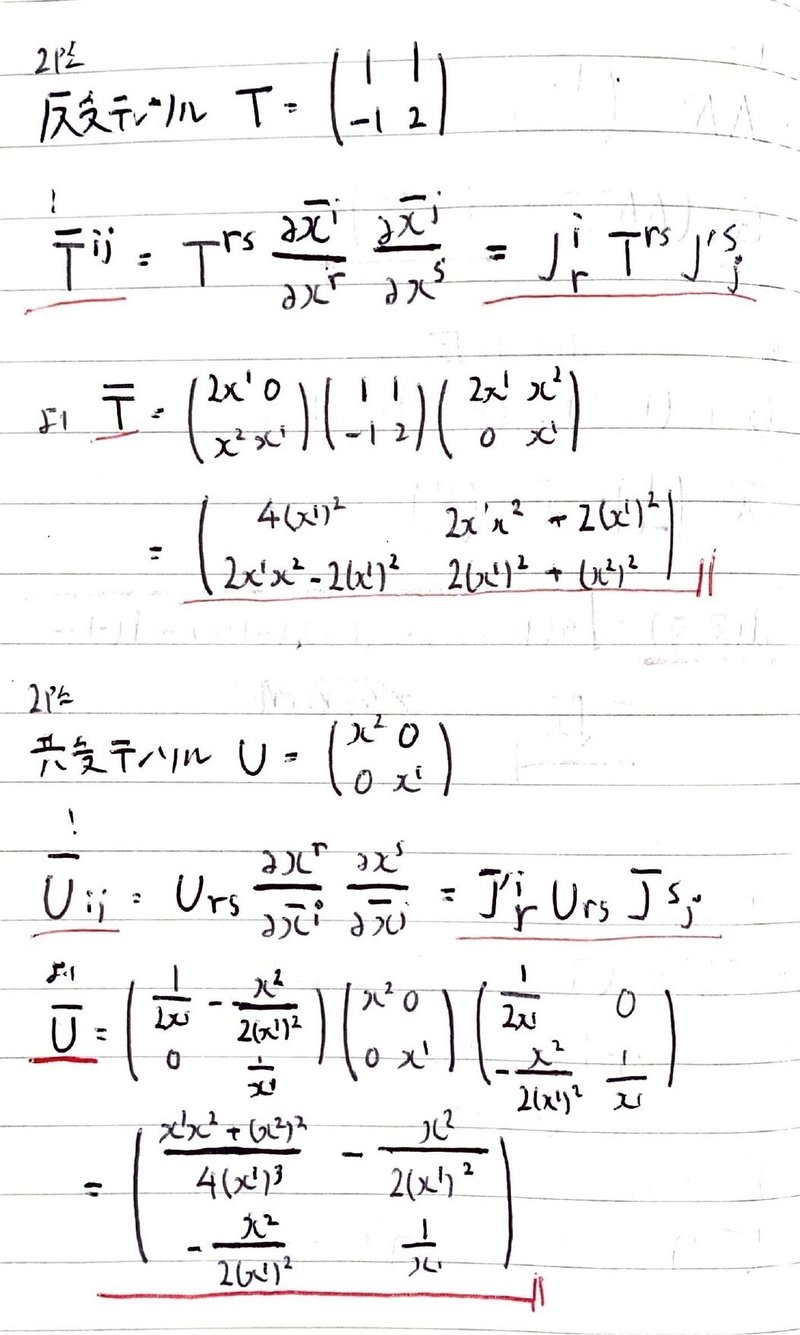 2階
反変テンソル T = ( 1 1 ; -1 2 )
!
T̄^{ij} = T^{rs} ∂x̄^i/∂x^r ∂x̄^j/∂x^s = J^i_r T^{rs} J'^s_j
より T̄ = ( 2x^1 0 ; x^2 x^1 ) ( 1 1 ; -1 2 ) ( 2x^1 x^2 ; 0 x^1 )
= ( 4(x^1)^2 2x^1x^2 + 2(x^1)^2 ; 2x^1x^2 - 2(x^1)^2 2(x^1)^2 + (x^2)^2 )
2階
共変テンソル U = ( x^2 0 ; 0 x^1 )
!
Ū_{ij} = U_{rs} ∂x^r/∂x̄^i ∂x^s/∂x̄^j = J̄'^i_r U_{rs} J̄^s_j
より
Ū = ( 1/2x^1 -x^2/2(x^1)^2 ; 0 1/x^1 ) ( x^2 0 ; 0 x^1 ) ( 1/2x^1 0 ; -x^2/2(x^1)^2 1/x^1 )
= ( x^1x^2 + (x^2)^2/4(x^1)^3 -x^2/2(x^1)^2 ; -x^2/2(x^1)^2 1/x^1 )